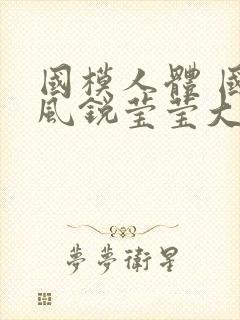 國模人體 國
風銳莹莹大
夢夢衛星